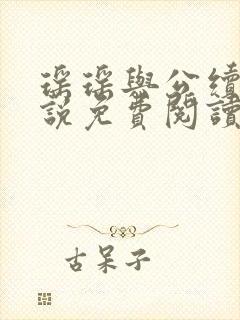 瑶瑶與公續
説免費閱讀
古呆子